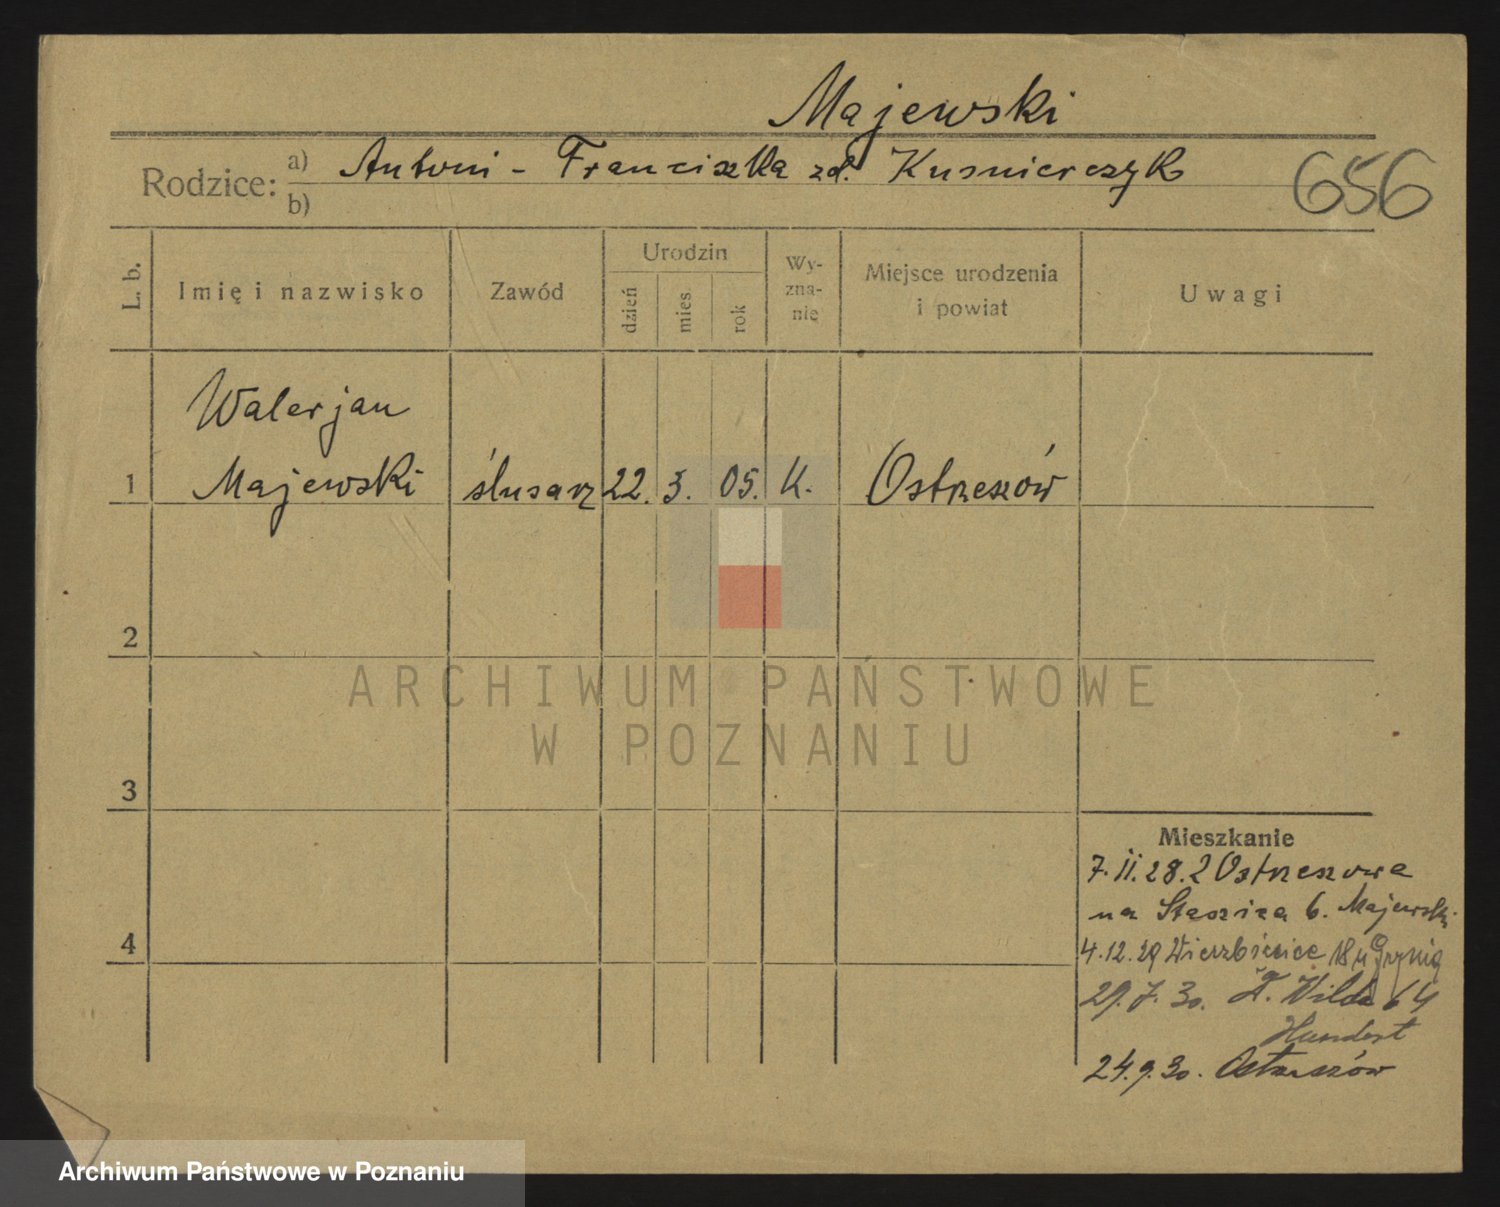 Majewski
Rodzice: a) Antoni - Franciszka zd. Kusnierczyk
b)
656
L. b.
Imię i nazwisko
Zawód
Urodzin
dzień
mies
rok
Wy-
zna-
nie
Miejsce urodzenia
i powiat
Uwagi
Walerjan
1 Majewski ślusarz 22. 3. 05. K. Ostrzeszów
2
ARCHIWUM PAŃSTWOWE
W POZNANIU
3
Mieszkanie
7.11.28. z Ostrzeszowa
na Staszica 6. Majewski
4
4.12.29 Wierzbięcice 18 u
29.7.30. Wilda 64
24.9.30. Ostrzeszów
Archiwum Państwowe w Poznaniu